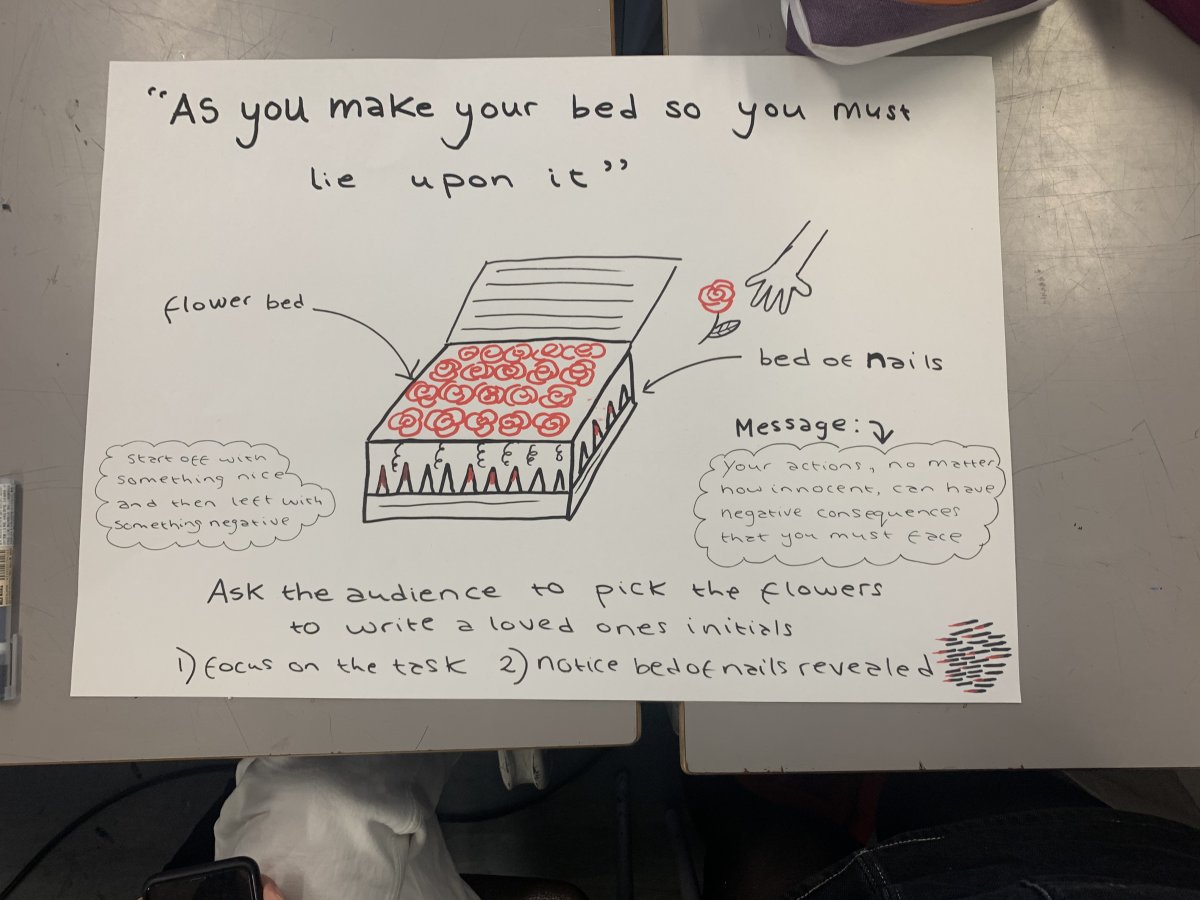 "As you make your bed so you must
lie upon it"
flower bed
bed of nails
Message:
start off with
something nice
and then left with
something negative
your actions, no matter
how innocent, can have
negative consequences
that you must face
Ask the audience to pick the flowers
to write a loved ones initials
1) focus on the task 2) notice bed of nails revealed